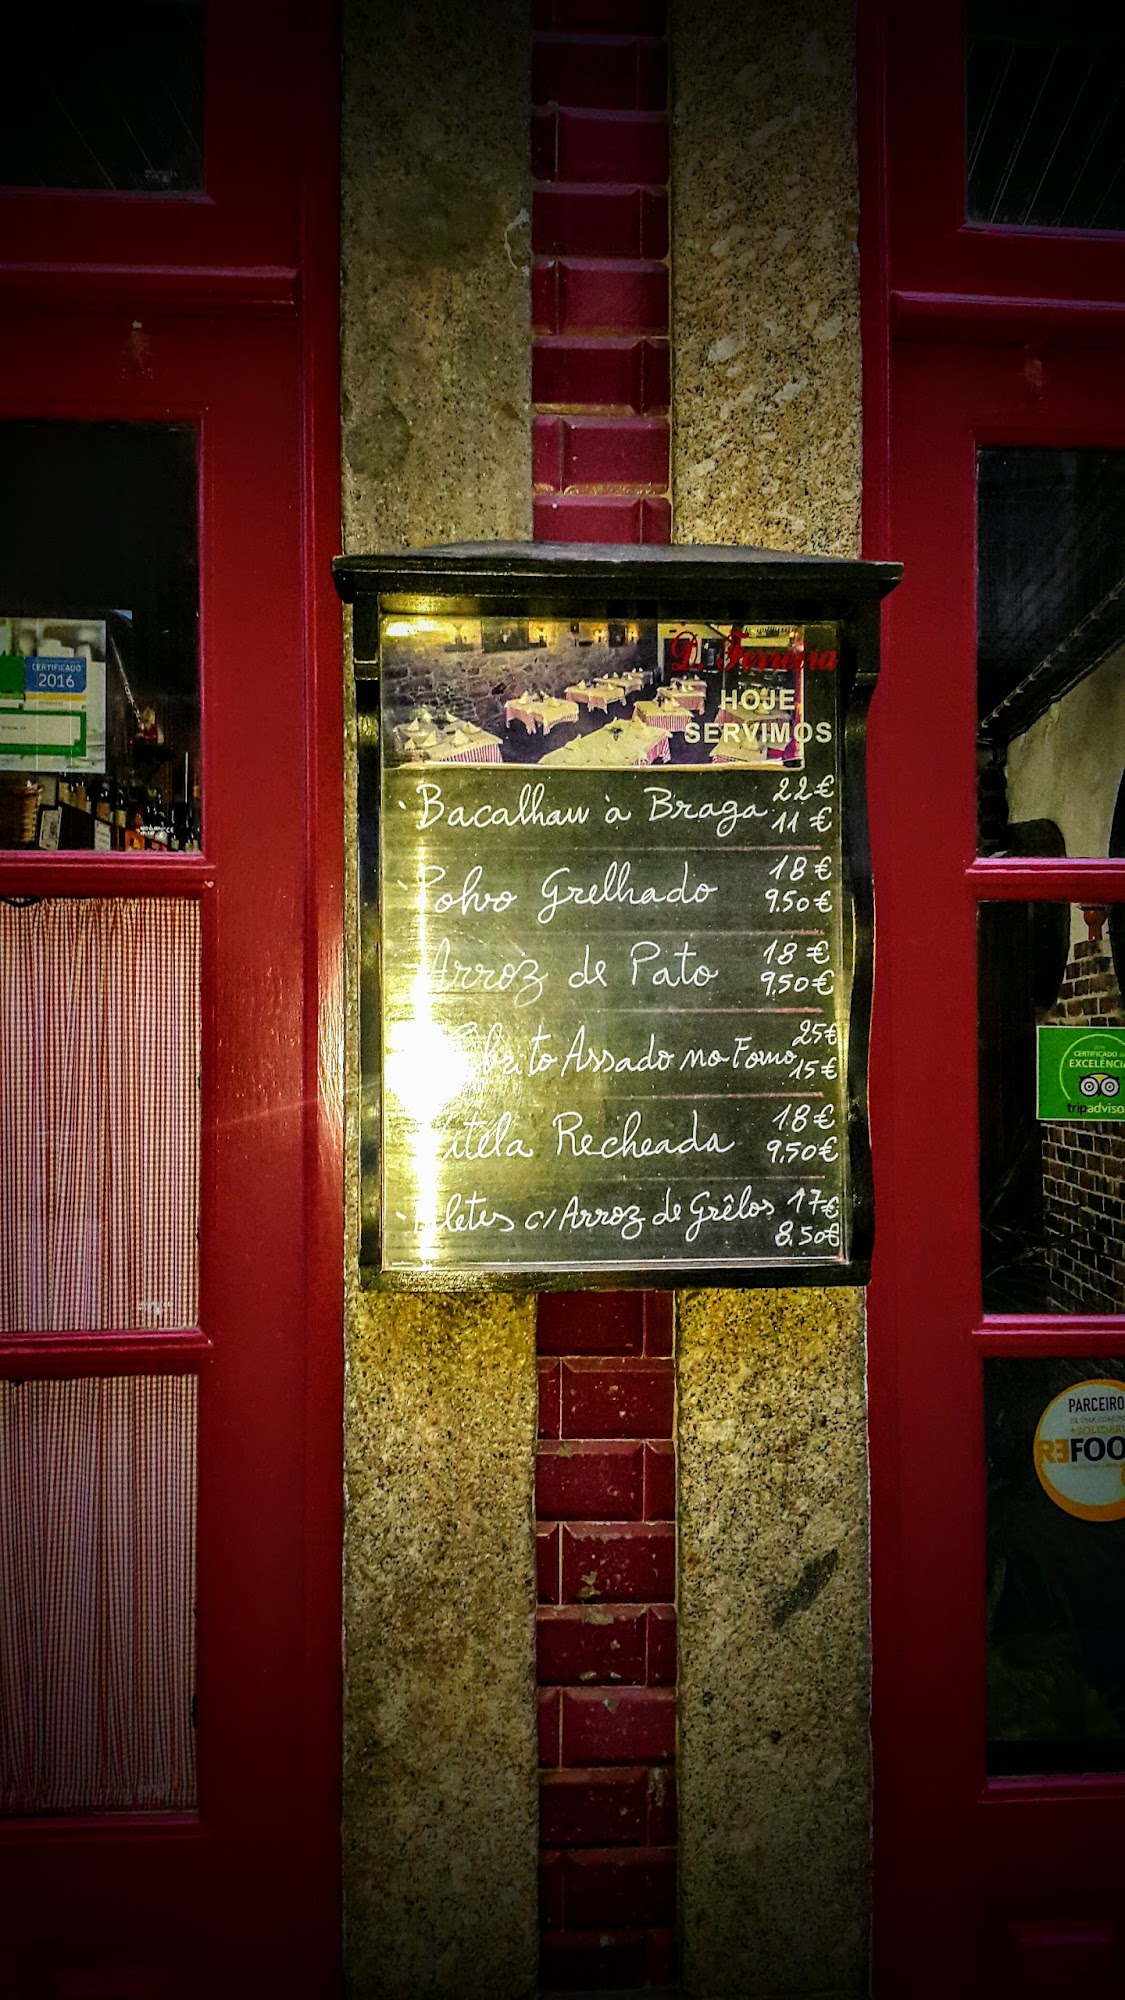 CERTIFICADO
2016
D. Ferreira
HOJE
SERVIMOS
Bacalhau à Braga 22€
11€
Polvo Grelhado 18€
9,50€
Arroz de Pato 18€
9,50€
Cabrito Assado no Forno 25€
15€
Vitela Recheada 18€
9,50€
Filetes c/ Arroz de Grêlos 17€
8,50€
CERTIFICADO
EXCELÊNCIA
tripadviso
PARCEIRO
DE UMA
REFOO